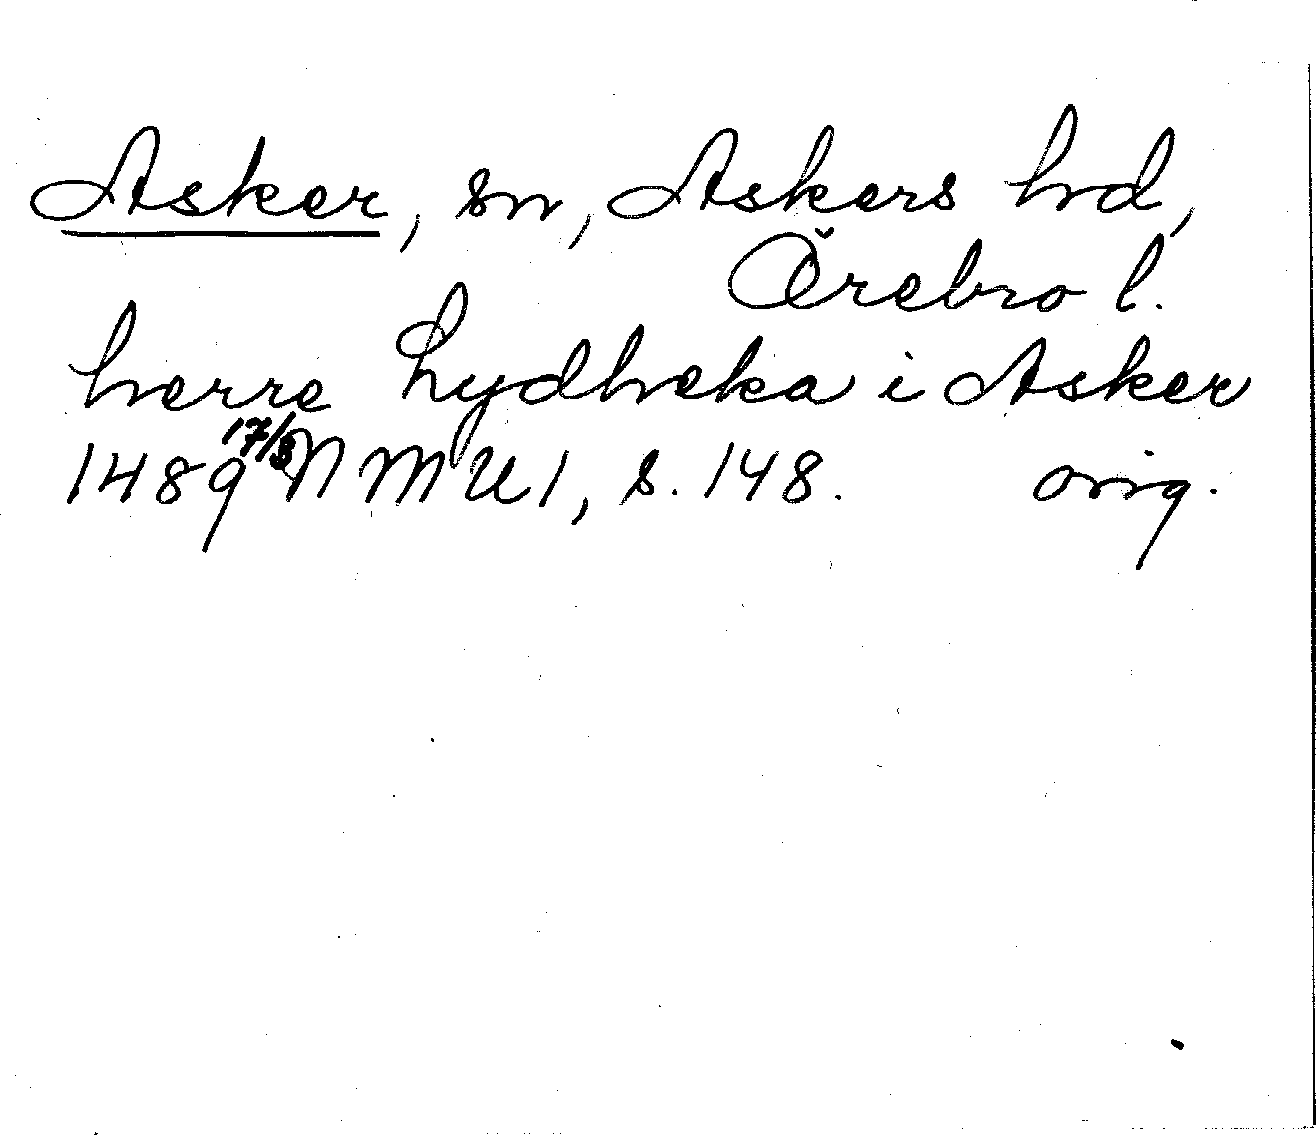 Asker, sn, Askers hd,
Örebro l.
herre Lydheka i Asker
1489 17/3 NMU1, s. 148. orig.